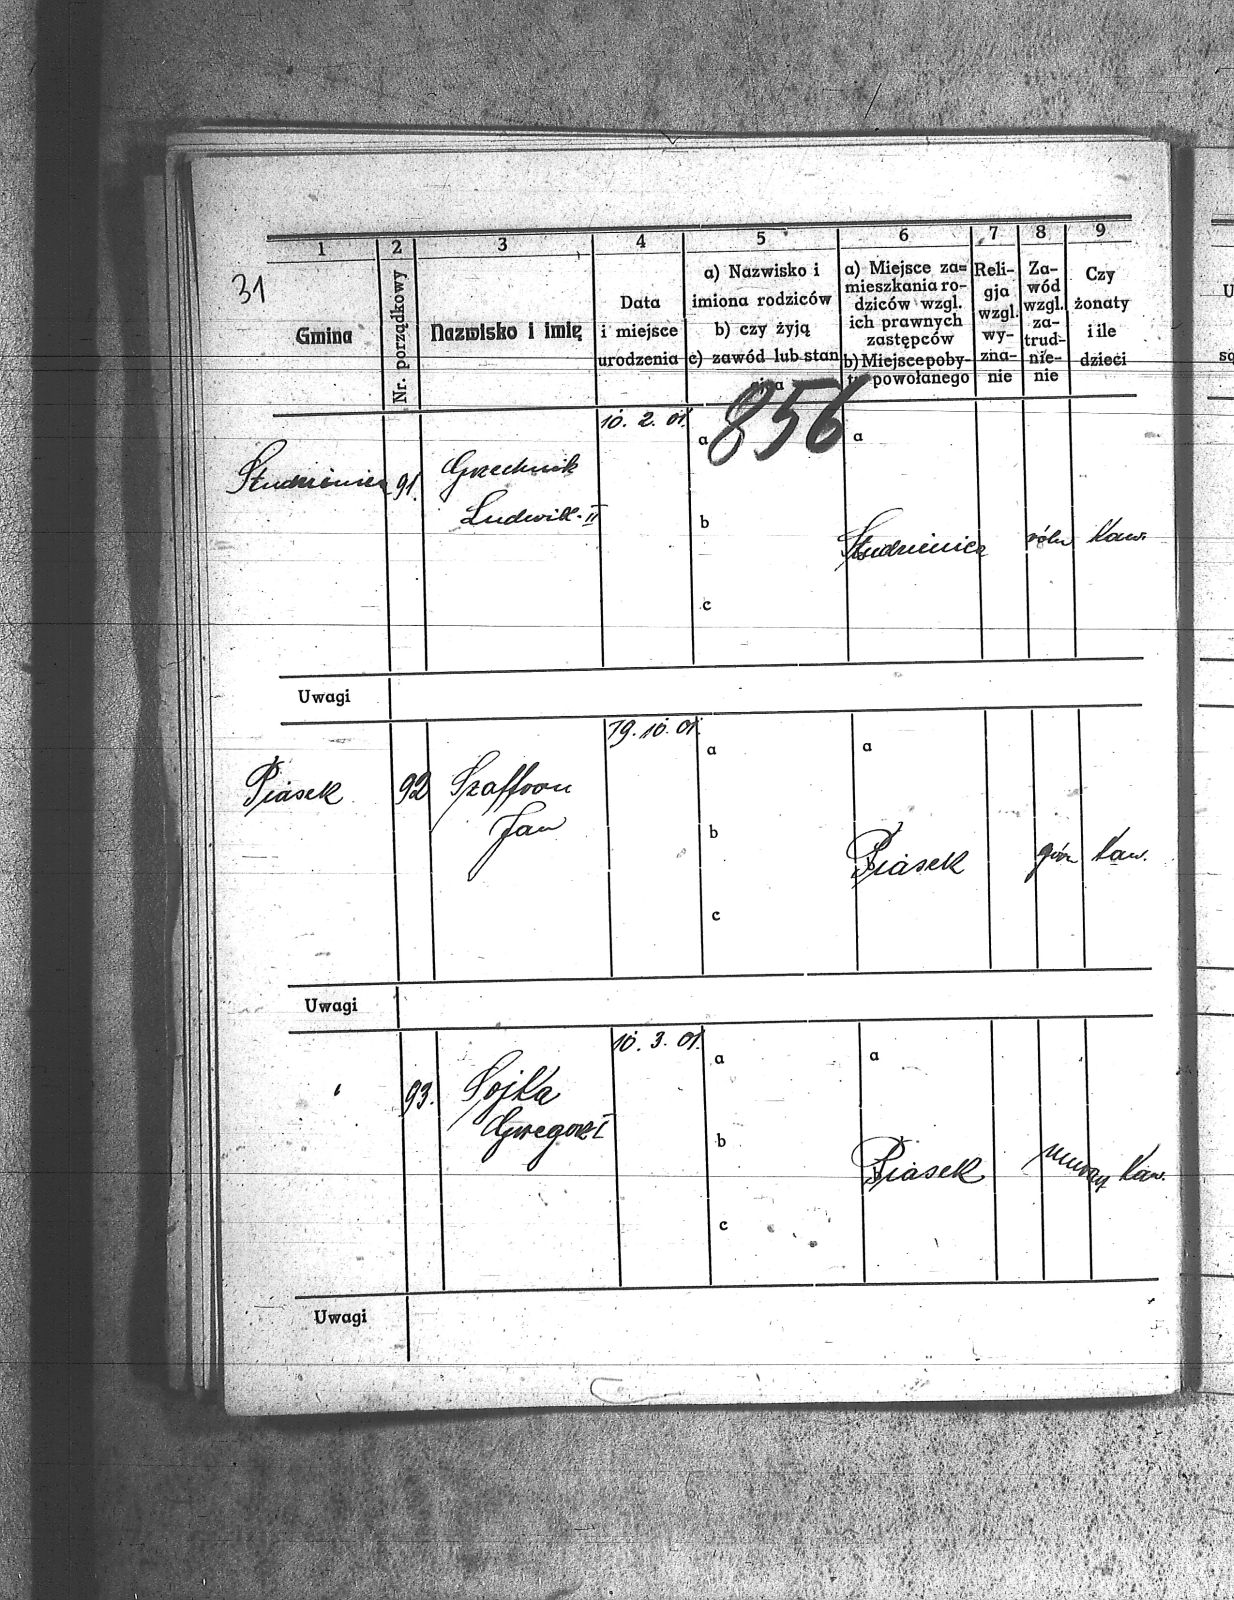 31
1 2 3 4 5 6 7 8 9
Gmina
Nr. porządkowy
Nazwisko i imię
Data
i miejsce
urodzenia
a) Nazwisko i
imiona rodziców
b) czy żyją
c) zawód lub stan
a) Miejsce za=
mieszkania ro-
dziców wzgl.
ich prawnych
zastępców
b) Miejsce poby-
tu powołanego
Reli-
gja
wzgl.
wy-
zna-
nie
Za-
wód
wzgl.
za-
trud-
nie-
nie
Czy
żonaty
i ile
dzieci
856
10. 2. 01.
a a
Studzienice 91. Grzechnik
Ludwik. II
b
Studzienice róln Kaw.
c
Uwagi
19. 10. 01.
a a
Piasek 92 Szaffron
Jan
b
Piasek górn Kaw.
c
Uwagi
10. 3. 01.
a a
" 93. Sojka
Grzegorz I
b
Piasek murarz Kaw.
c
Uwagi